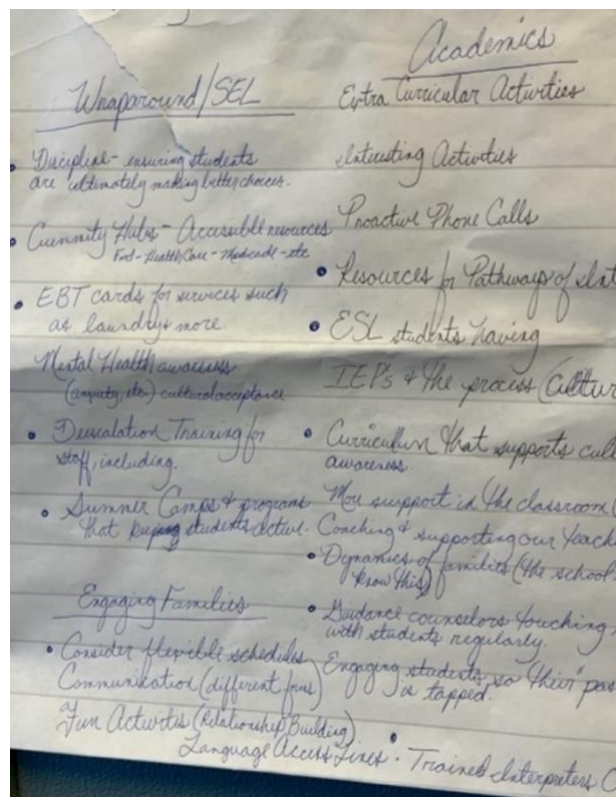 Wraparound/SEL
• Discipline - ensuring students
are ultimately making better choices.
• Cummnity Hubs - Accessible resources
Food - HealthCare - Medicade - etc
• EBT cards for services such
as laundry & more.
Mental Health awareness
(anxiety, etc.) cultural acceptance
• Deescalation Training for
staff, including.
• Summer Camps & programs
that keep students active.
Engaging Families
• Consider flexible schedules
Communication (different forms)
Fun Activites (Relationship Building)
Language Access Lines •
Academics
Extra Curricular Activities
Interesting Activities
Proactive Phone Calls
• Resources for Pathways of Int
• ESL students having
IEP's & the process (Cultur
• Curriculum that supports cul
awareness.
More support in the classroom (
Coaching & supporting our teach
• Dynamics of families (the school
know this)
• Guidance counselors touching
with students regularly.
Engaging students so their "pas
is tapped.
• Trained Interpreters